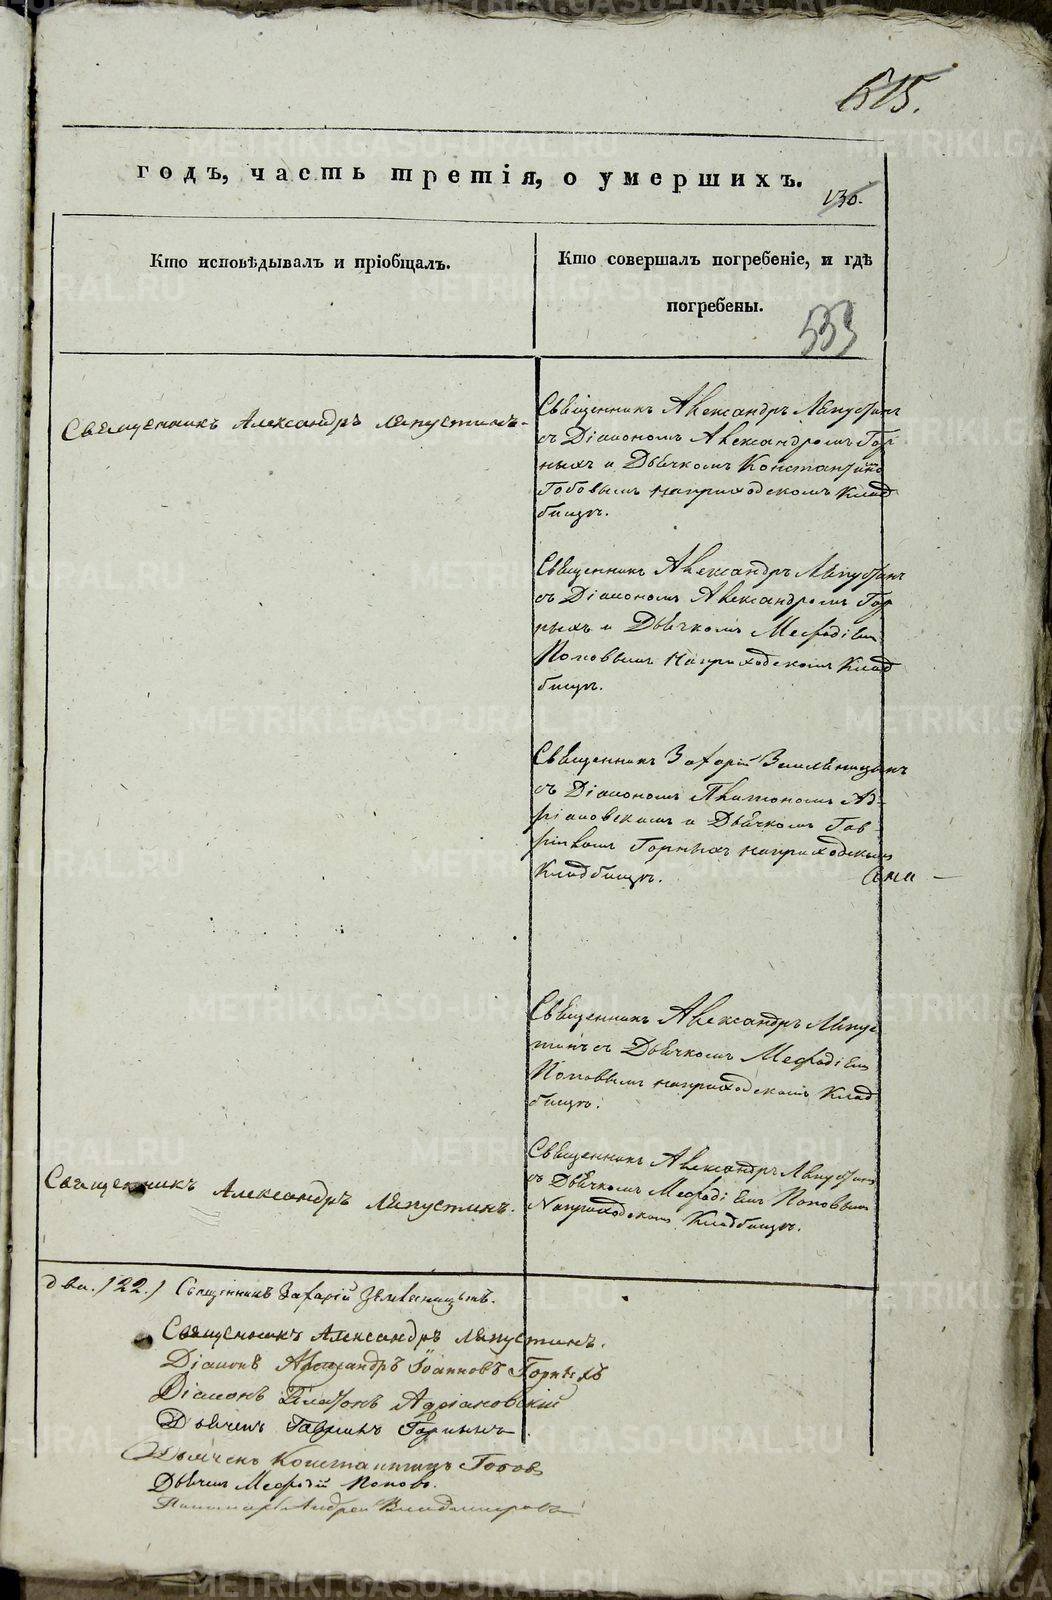 515.
годъ, часть третія, о умершихъ.
130.
Кто исповѣдывалъ и пріобщалъ.
Кто совершалъ погребеніе, и гдѣ
погребены.
533
Священникъ Александръ Ляпустинъ.
Священникъ Александръ Ляпустинъ
съ Діакономъ Александромъ Гор
ныхъ и Дьячкомъ Константино
Тоговымъ на приходскомъ Клад
бищѣ.
Священникъ Александръ Ляпустинъ
съ Діакономъ Александромъ Гор
ныхъ и Дьячкомъ Мефодіем
Поповымъ на приходскомъ Клад
бищѣ.
Священникъ Захарій
съ Діакономъ Платономъ Ад-
ріановскимъ и Дьячкомъ Гав
ріиломъ Горныхъ на приходскомъ
Кладбищѣ.
Священникъ Александръ Ляпус
тинъ съ Дьячкомъ Мефодіем
Поповымъ на приходскомъ Клад
бищѣ.
Священникъ Александръ Ляпустинъ.
Священникъ Александръ Ляпустинъ
съ Дьячкомъ Мефодіемъ Поповымъ
на приходскомъ Кладбищѣ.
два. /22./ Священникъ Захарій
Священникъ Александръ Ляпустинъ.
Діаконъ Александръ Іоанновъ Горныхъ
Діаконъ Платонъ Адріановскій
Дьячекъ Гавріилъ Горныхъ
Дьячекъ Константинъ
Дьячекъ Мефодій Поповъ.
Пономарь Андрей Владимировъ
METRIKI.GASO-URAL.RU